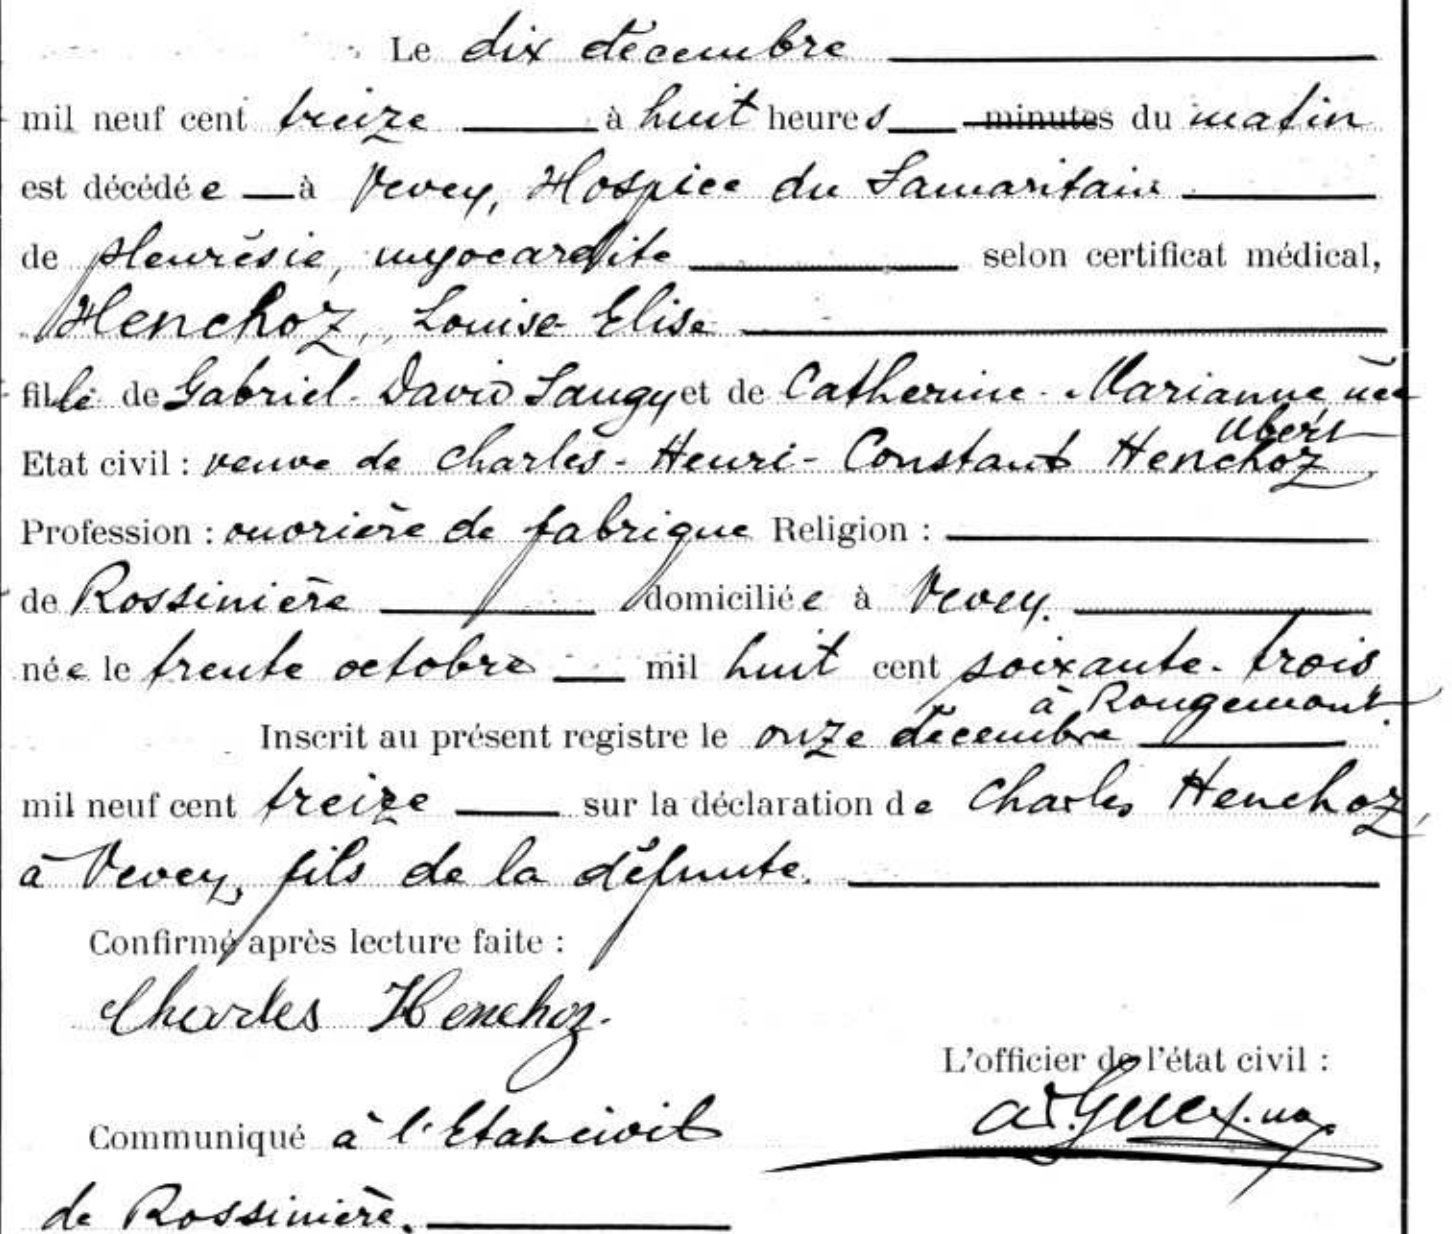 Le dix décembre
mil neuf cent treize à huit heures minutes du matin
est décédée à Vevey, Hospice du Samaritain
de pleurésie, myocardite selon certificat médical,
Henchoz, Louise Elise
fille de Gabriel-David Saugy et de Catherine-Marianne, née
Ubert
Etat civil : veuve de Charles-Henri-Constant Henchoz
Profession : ouvrière de fabrique Religion :
de Rossinière domiciliée à Vevey.
née le trente octobre mil huit cent soixante-trois
à Rougemont.
Inscrit au présent registre le onze décembre
mil neuf cent treize sur la déclaration de Charles Henchoz,
à Vevey, fils de la défunte.
Confirmé après lecture faite :
Charles Henchoz.
L'officier de l'état civil :
Communiqué à l'Etat civil
de Rossinière.